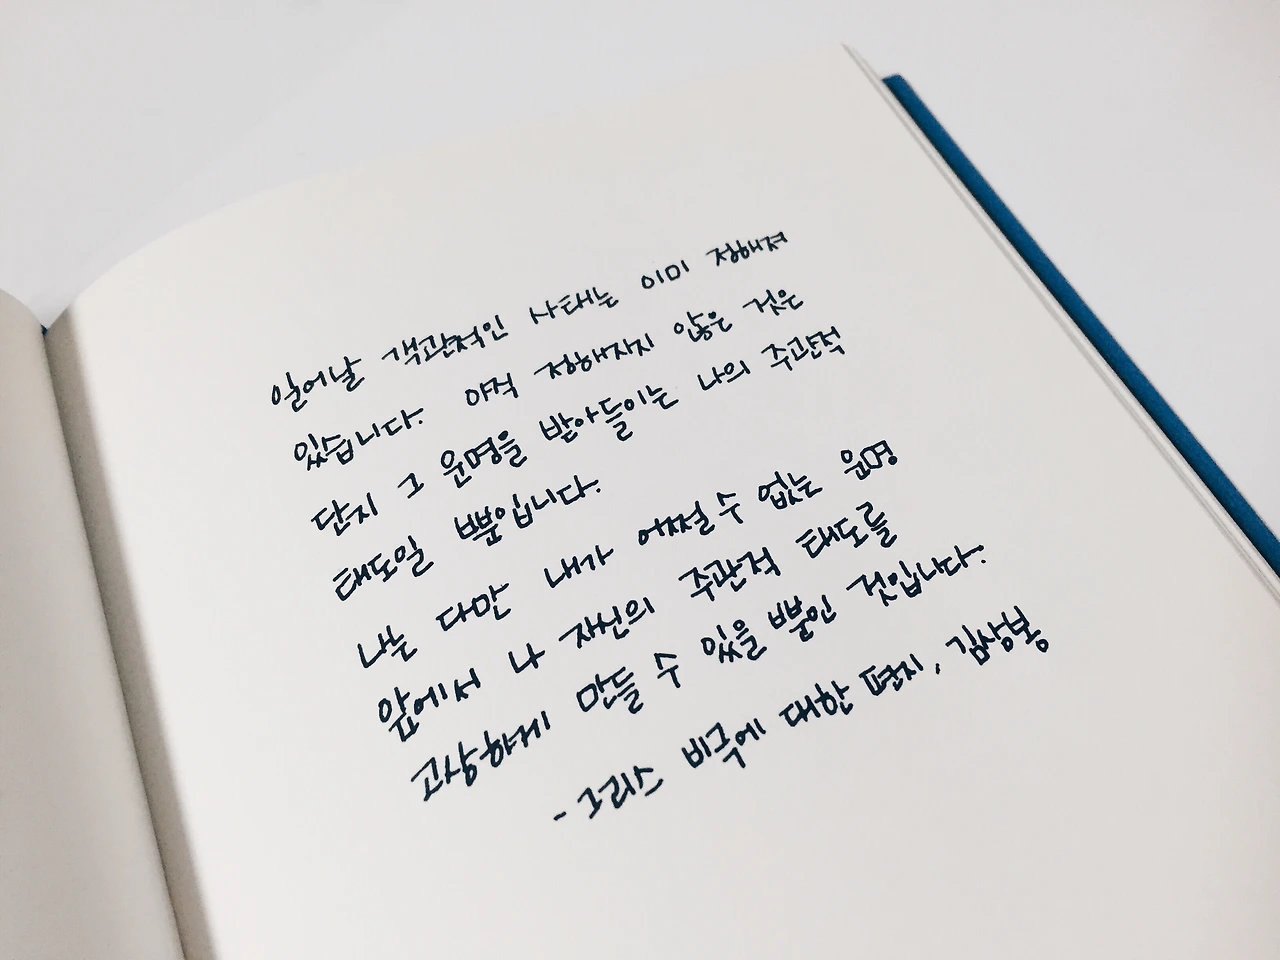 일어날 객관적인 사태는 이미 정해져
있습니다. 아직 정해지지 않은 것은
단지 그 운명을 받아들이는 나의 주관적
태도일 뿐입니다.
나는 다만 내가 어쩔 수 없는 운명
앞에서 나 자신의 주관적 태도를
고상하게 만들 수 있을 뿐인 것입니다.
- 그리스 비극에 대한 편지, 김상봉